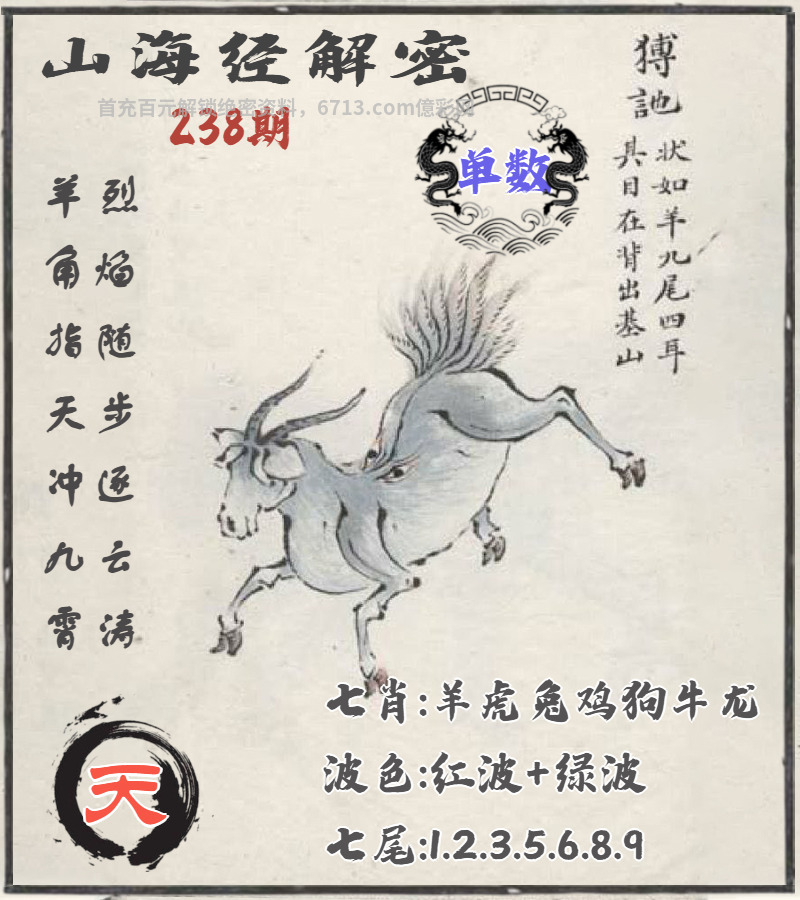 山海经解密
首充百元解锁绝密资料，6713.com億彩
238期
单数
猼訑
状如羊九尾四耳
其目在背出基山
羊角指天冲九霄
烈焰随步逐云涛
天
七肖:羊虎兔鸡狗牛龙
波色:红波+绿波
七尾:1.2.3.5.6.8.9